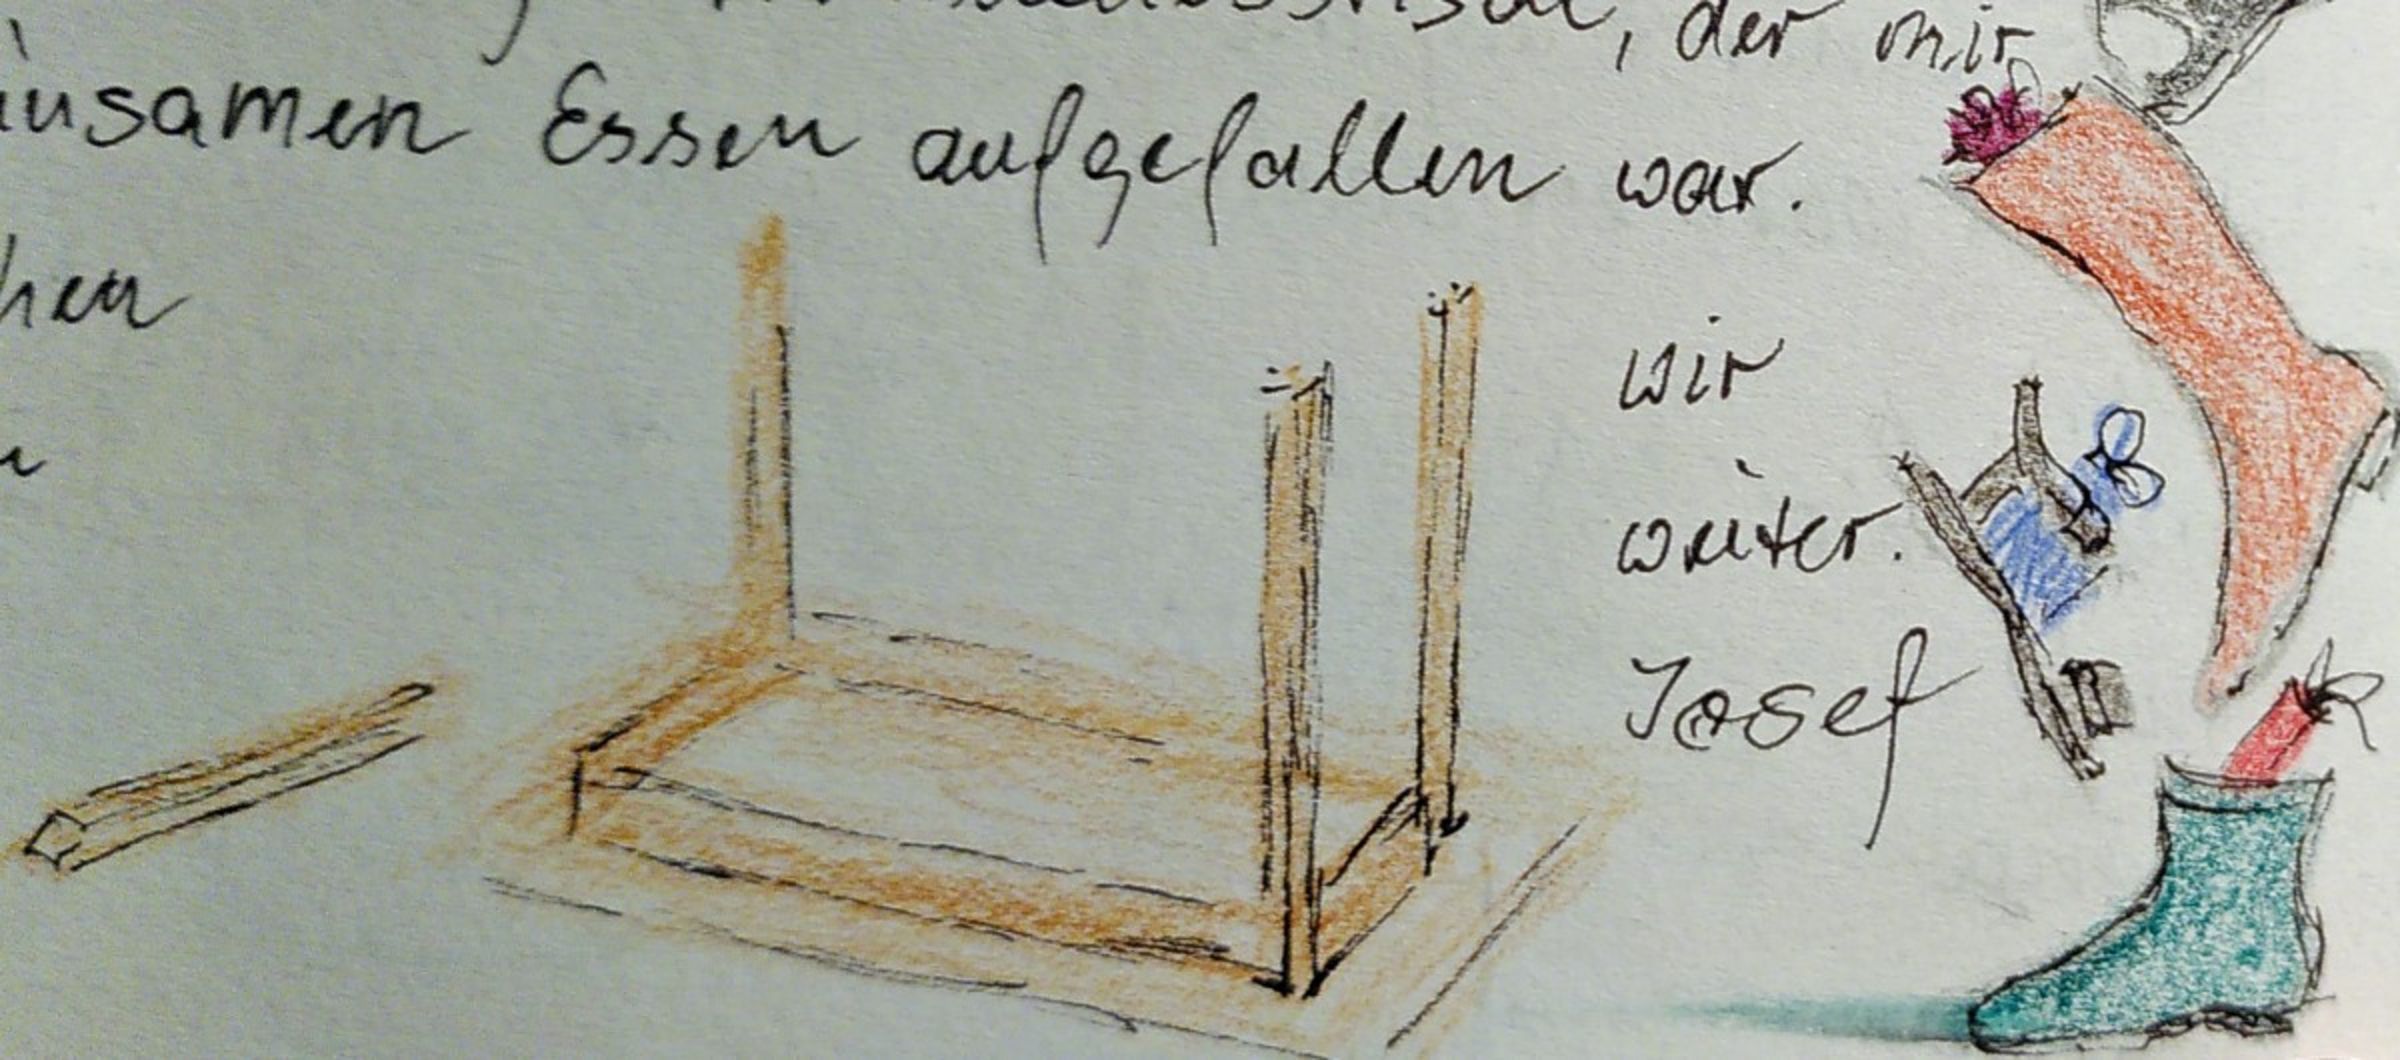 , der mir
insamen Essen aufgefallen war.
hen
wir
weiter.
Josef